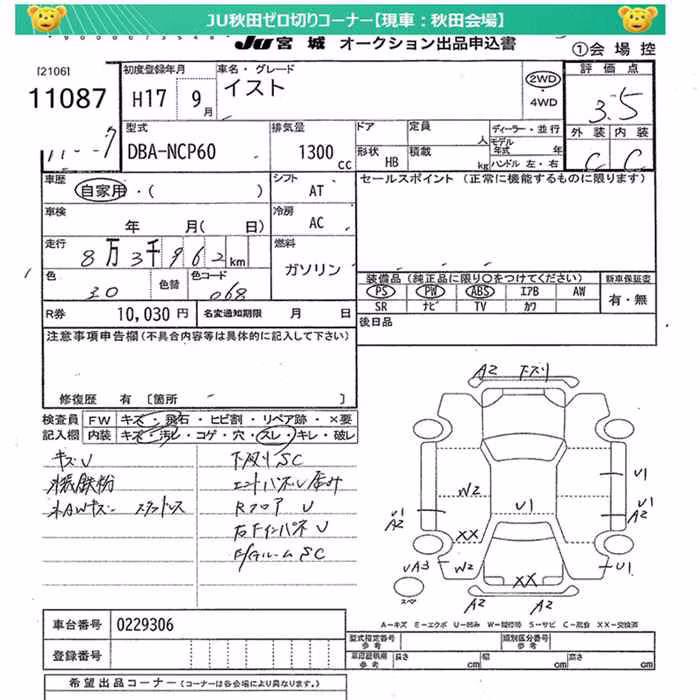 JU秋田ゼロ切りコーナー【現車：秋田会場】
JU 宮城 オークション出品申込書
①会場控
[2106]
11087
初度登録年月
H17 9月
車名・グレード
イスト
2WD
・
4WD
評価点
3.5
外装 内装
C C
型式
DBA-NCP60
排気量
1300 cc
ドア
定員 人
形状 HB
積載 kg
ディーラー・並行
モデル年式 年
ハンドル 左・右
車歴
自家用・( )
シフト
AT
セールスポイント (正常に機能するものに限ります)
車検
年 月( 日)
冷房
AC
走行
8万3千962km
燃料
ガソリン
色
色替
色コード
068
装備品 (純正品に限り○をつけてください)
PS PW ABS エアB AW
SR ナビ TV カワ
新車保証書
有・無
R券
10,030円
名変通知期限 月 日
後日品
注意事項申告欄(不具合内容等は具体的に記入して下さい)
修復歴 有 [箇所 ]
検査員記入欄
FW キズ・飛石・ヒビ割・リペア跡・×要
内装 キズ・汚レ・コゲ・穴・スレ・キレ・破レ
キズU
下廻りSC
エンドパネルU
RフロアU
右FインパネU
A2 下ズリ
W2
U1
U1
U1
A2
U1
A2
XX
XX
W2
UA3
U1
スペ
A2
A2
A-キズ E-エクボ U-凹み W-補修跡 S-サビ C-腐食 XX-交換済
車台番号 0229306
登録番号
型式指定番号 参考
類別区分番号 参考
車両明細 参考
長さ cm
幅 cm
高さ cm
希望出品コーナー (コーナーは各会場により異なります。)